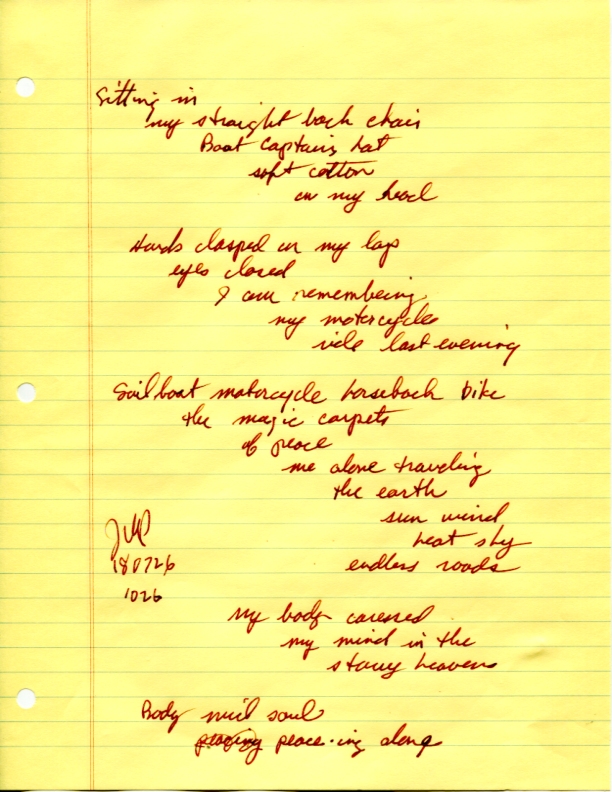 Sitting in
my straight back chair
Boat captains hat
soft cotton
on my head
Hands clasped on my lap
eyes closed
I am remembering
my motorcycle
ride last evening
Sailboat motorcycle horseback bike
the magic carpets
of peace
me alone traveling
the earth
sun wind
heat sky
endless roads
180726
1026
My body caressed
my mind in the
starry heavens
Body mind soul
peace-ing along